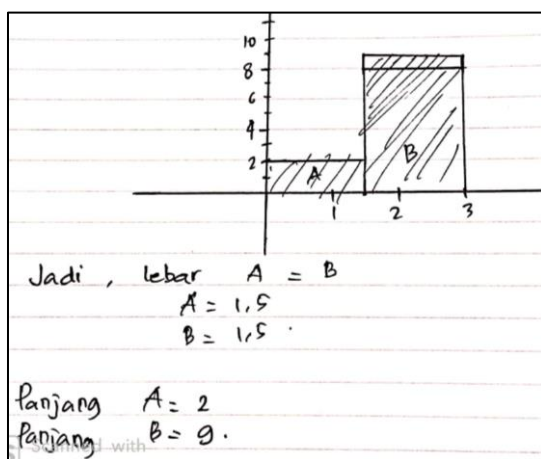 10
8
6
4
2
A
B
1 2 3
Jadi, lebar A = B
A = 1,5
B = 1,5.
Panjang A = 2
Panjang B = 9.
Scanned with